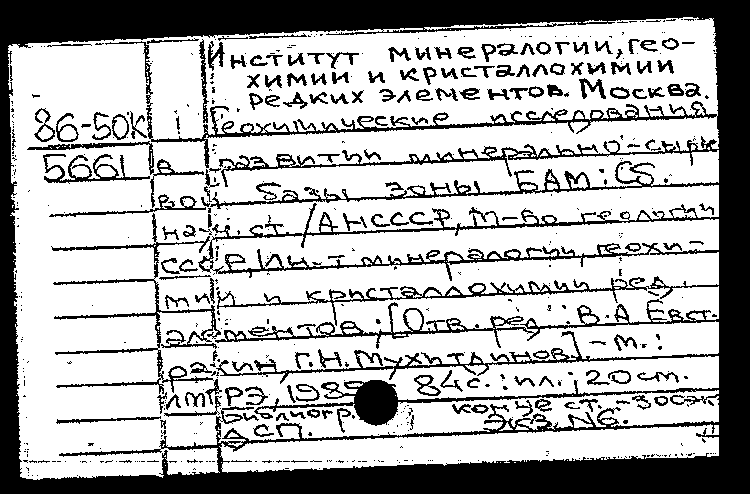 Институт минералогии, гео-
химии и кристаллохимии
редких элементов. Москва.
86-50К Геохимические исследования
5661 в развитии минерально-сырье
вой базы зоны БАМ: Сб.
науч. ст. / АН СССР, М-во геологии
СССР, Ин-т минералогии, геохи-
мии и кристаллохимии ред.
элементов; [Отв. ред.: В.А Евст.
рахин, Г.Н. Мухитдинов]. - М.:
ИМГРЭ, 84с.: ил.; 20см.
Библиогр. конце ст. -
ДСП. Экз. N6.